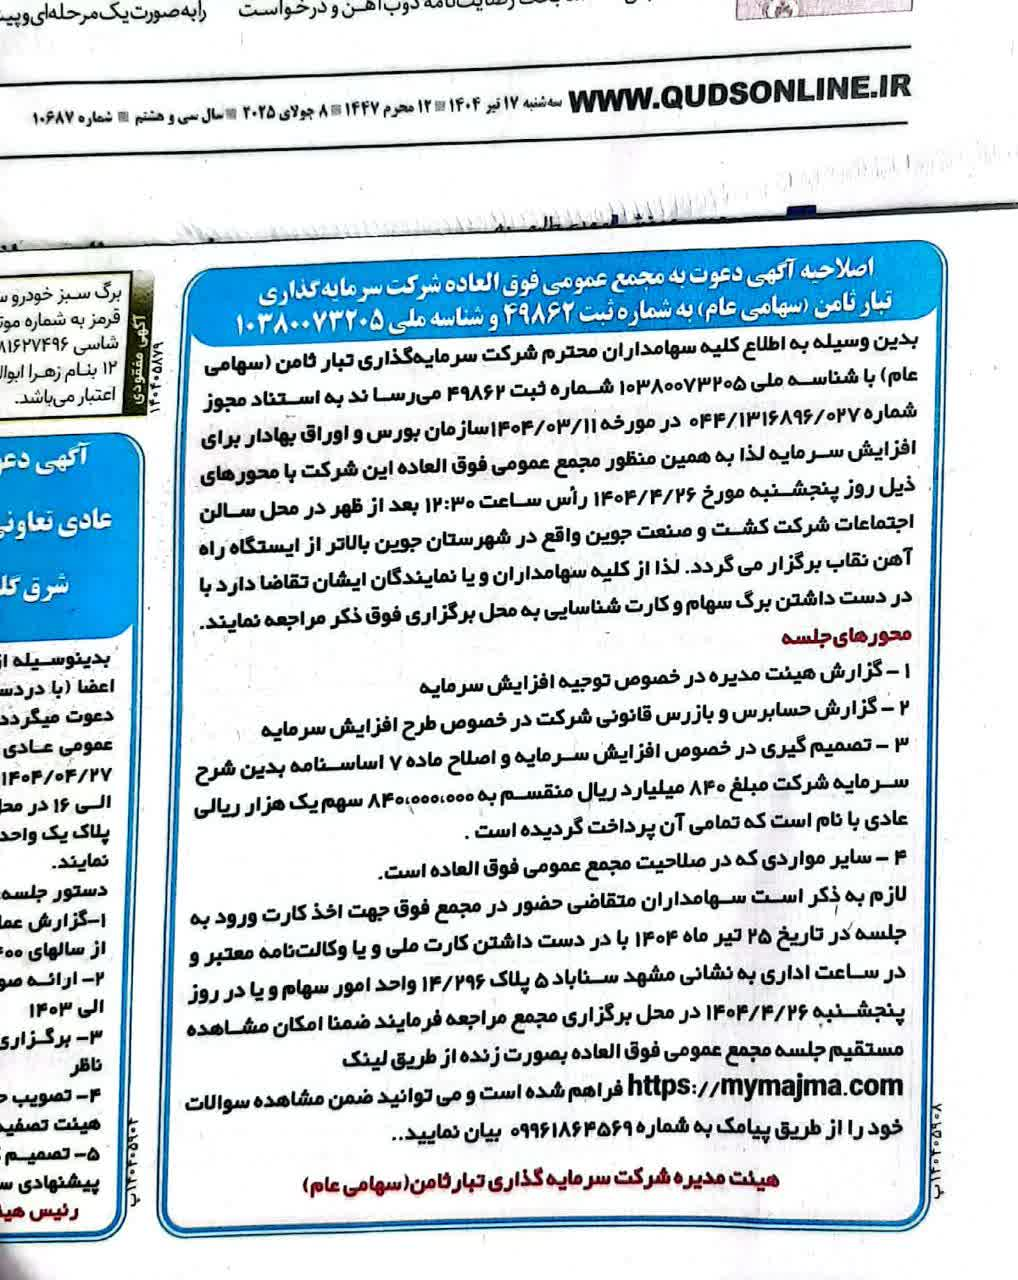 رضایت‌نامه ذوب آهن و درخواست
را به صورت یک مرحله‌ای و
WWW.QUDSONLINE.IR سه‌شنبه ۱۷ تیر ۱۴۰۴ ۱۲ محرم ۱۴۴۷ ۸ جولای ۲۰۲۵ سال سی و هشتم شماره ۱۰۶۸۷
اصلاحیه آگهی دعوت به مجمع عمومی فوق العاده شرکت سرمایه گذاری
تبار ثامن (سهامی عام) به شماره ثبت ۴۹۸۶۲ و شناسه ملی ۱۰۳۸۰۰۷۳۲۰۵
بدین وسیله به اطلاع کلیه سهامداران محترم شرکت سرمایه‌گذاری تبار ثامن (سهامی
عام) با شناسه ملی ۱۰۳۸۰۰۷۳۲۰۵ شماره ثبت ۴۹۸۶۲ می‌رسا ند به استناد مجوز
شماره ۰۴۴/۱۳۱۶۸۹۶/۰۲۷ در مورخه ۱۴۰۴/۰۳/۱۱سازمان بورس و اوراق بهادار برای
افزایش سرمایه لذا به همین منظور مجمع عمومی فوق العاده این شرکت با محورهای
ذیل روز پنجشنبه مورخ ۱۴۰۴/۴/۲۶ رأس ساعت ۱۲:۳۰ بعد از ظهر در محل سالن
اجتماعات شرکت کشت و صنعت جوین واقع در شهرستان جوین بالاتر از ایستگاه راه
آهن نقاب برگزار می گردد. لذا از کلیه سهامداران و یا نمایندگان ایشان تقاضا دارد با
در دست داشتن برگ سهام و کارت شناسایی به محل برگزاری فوق ذکر مراجعه نمایند.
محورهای جلسه
۱- گزارش هیئت مدیره در خصوص توجیه افزایش سرمایه
۲- گزارش حسابرس و بازرس قانونی شرکت در خصوص طرح افزایش سرمایه
۳- تصمیم گیری در خصوص افزایش سرمایه و اصلاح ماده ۷ اساسنامه بدین شرح
سرمایه شرکت مبلغ ۸۴۰ میلیارد ریال منقسم به ۸۴۰،۰۰۰،۰۰۰ سهم یک هزار ریالی
عادی با نام است که تمامی آن پرداخت گردیده است .
۴- سایر مواردی که در صلاحیت مجمع عمومی فوق العاده است.
لازم به ذکر است سهامداران متقاضی حضور در مجمع فوق جهت اخذ کارت ورود به
جلسه در تاریخ ۲۵ تیر ماه ۱۴۰۴ با در دست داشتن کارت ملی و یا وکالت‌نامه معتبر و
در ساعت اداری به نشانی مشهد سناباد ۵ پلاک ۱۴/۲۹۶ واحد امور سهام و یا در روز
پنجشنبه ۱۴۰۴/۴/۲۶ در محل برگزاری مجمع مراجعه فرمایند ضمنا امکان مشاهده
مستقیم جلسه مجمع عمومی فوق العاده بصورت زنده از طریق لینک
https://mymajma.com فراهم شده است و می توانید ضمن مشاهده سوالات
خود را از طریق پیامک به شماره ۰۹۹۶۱۸۶۴۵۶۹ بیان نمایید..
هیئت مدیره شرکت سرمایه گذاری تبار ثامن(سهامی عام)
۱۴۰۴۰۵۹۰۸پ
آگهی مفقودی
برگ سبز خودرو
قرمز به شماره
شاسی ۸۱۶۲۷۴۹۶
۱۲ بنام زهرا
اعتبار می‌باشد.
۱۴۰۴۰۵۸۷۹
آگهی
عادی تعاونی
شرق
بدینوسیله
اعضا (با
دعوت میگردد
عمومی عادی
۱۴۰۴/۰۴/۲۷
الی ۱۶ در
پلاک یک واحد
نمایند.
دستور جلسه
۱-گزارش
از سالهای
۲- ارائه
الی ۱۴۰۳
۳- برگزاری
ناظر
۴- تصویب
هیئت
۵- تصمیم
پیشنهادی
رئیس
۱۴۰۴۰۵۹۰۴پ